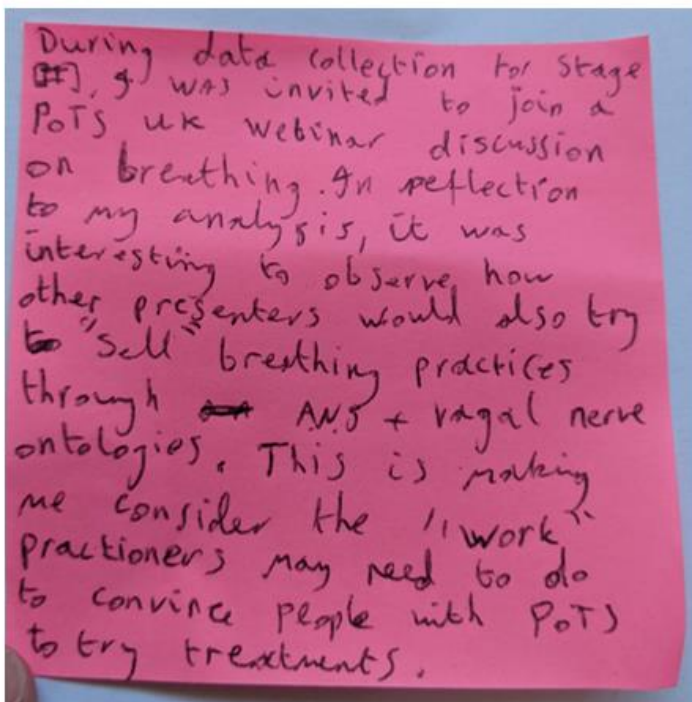 During data collection for Stage
, I was invited to join a
PoTS UK webinar discussion
on breathing. In reflection
to my analysis, it was
interesting to observe how
other presenters would also try
to "sell" breathing practices
through ANS + vagal nerve
ontologies. This is making
me consider the "work"
practioners may need to do
to convince people with PoTS
to try treatments.